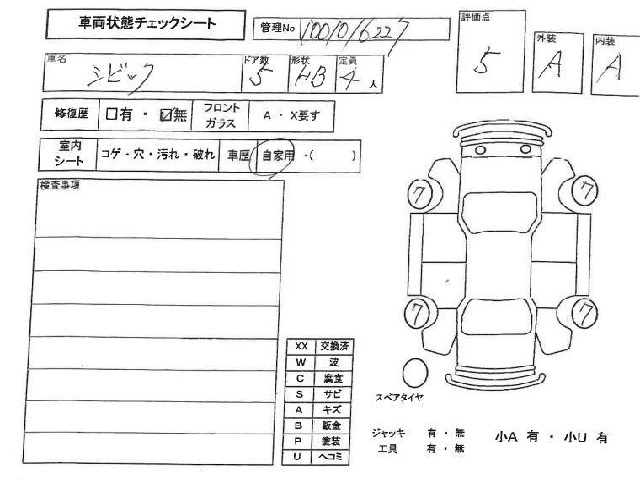 車両状態チェックシート
管理No 10010/6227
評価点 5
外装 A
内装 A
車名 シビック
ドア数 5
形状 HB
定員 4 人
修復歴 □有 ・ ☑無
フロントガラス A ・ X要す
室内シート コゲ・穴・汚れ・破れ
車歴 自家用 ・( )
検査事項
7 7
7 7
XX 交換済
W 波
C 腐食
S サビ
A キズ
B 鈑金
P 塗装
U ヘコミ
スペアタイヤ
ジャッキ 有 ・ 無
工具 有 ・ 無
小A 有 ・ 小U 有